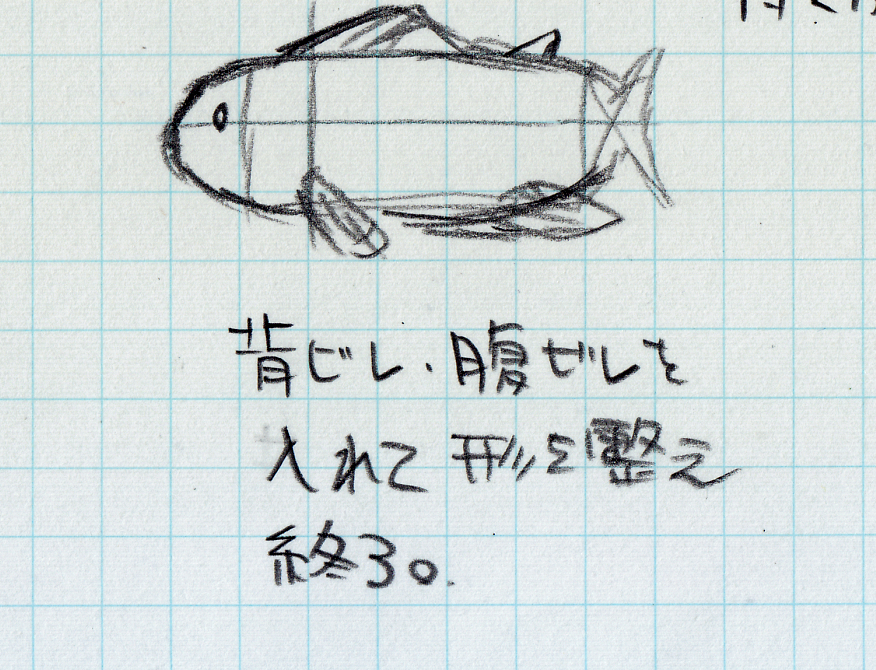 背ビレ・腹ビレを
入れて形を整え
終る。